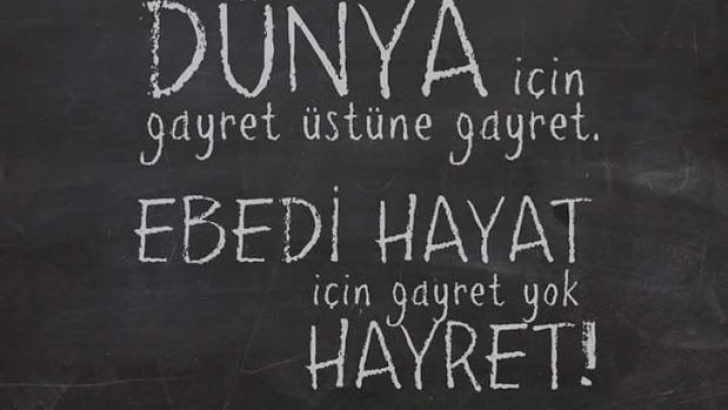 DÜNYA için
gayret üstüne gayret.
EBEDİ HAYAT
için gayret yok
HAYRET!